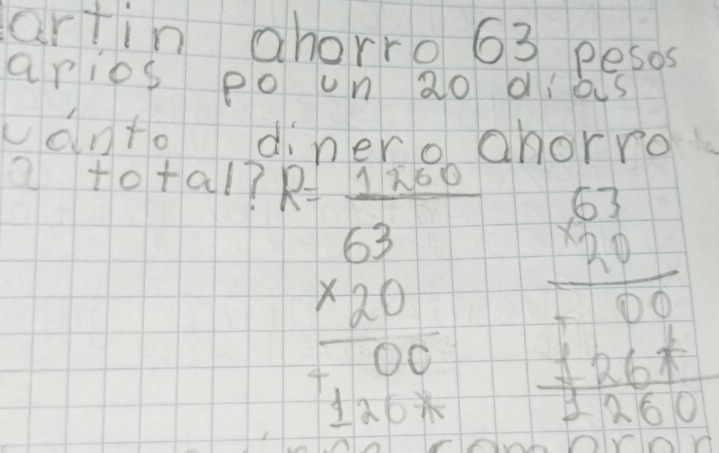 artin ahorro 63 pesos
arios po un 20 dias
uánto dinero ahorro
total? R= 1260
63 63
×20 ×20
00 00
+126* +126*
1260